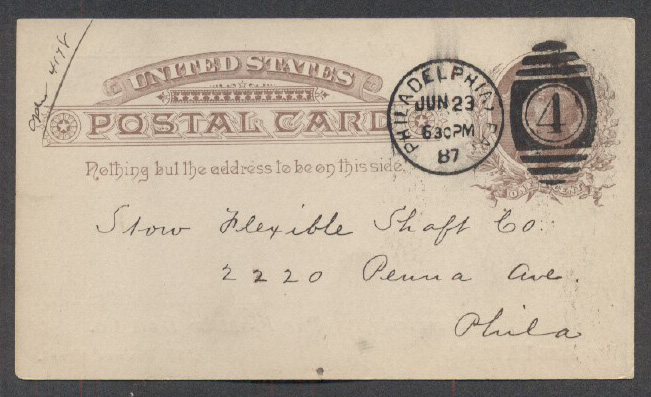 4178
UNITED STATES
POSTAL CARD
Nothing but the address to be on this side.
PHILADELPHIA PA
JUN 23
630PM
87
4
ONE CENT
Stow Flexible Shaft Co.
2220 Penna Ave.
Phila